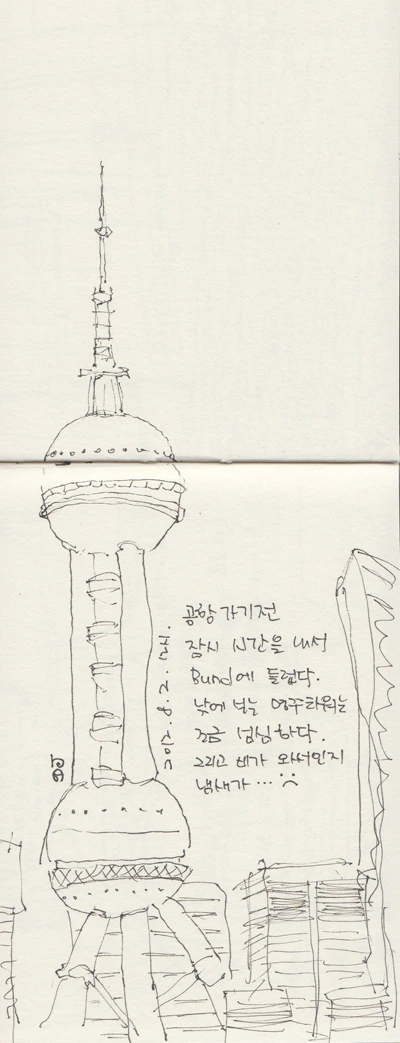 공항 가기전
잠시 시간을 내서
Bund에 들렀다.
낮에 보는 명주타워는
조금 심심하다.
그리고 비가 와서인지
냄새가 … :(
2012. 8. 2.